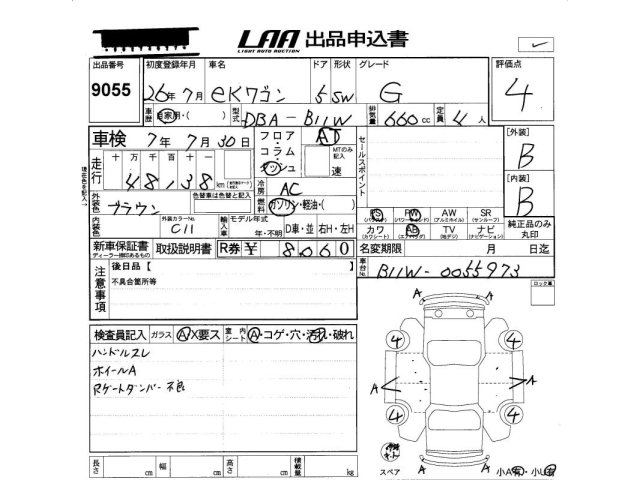 LAA 出品申込書
LIGHT AUTO AUCTION
出品番号 初度登録年月 車名 ドア 形状 グレード 評価点
9055 26年7月 eKワゴン 5 5W G 4
車歴 自家用・( ) 型式 DBA-B11W 排気量 660cc 定員 4人
車検 7年7月30日 フロア コラム ダッシュ AT MTのみ記入 速 セールスポイント [外装] B
走行 十万千百十 48138km 冷房 AC [内装] B
外装色 ブラウン 色替車は色替と記入 燃料 ガソリン・軽油・( )
内装色 外装カラーNo. C11 輸入車 モデル年式 年・不明 D車・並 右H・左H
PS PW AW SR
(パワステ) (パワーウインド) (アルミホイル) (サンルーフ)
カワ AB TV ナビ 純正品のみ丸印
(カワシート) (エアバッグ) (地デジ) (ナビゲーション)
新車保証書 取扱説明書 R券 ¥ 8060 名変期限 月 日迄
ディーラー捺印あるもの
車台No. B11W-0055973
注意事項 後日品【
不具合箇所等
ロック数
検査員記入 ガラス A X要ス 室内シート A・コゲ・穴・汚れ・破れ
ハンドルスレ
ホイールA
Rゲートダンパー不良
A A
4 4
A A
4 4
スペア A A 小A有・小U有
長さ cm 幅 cm 高さ cm 積載量 kg